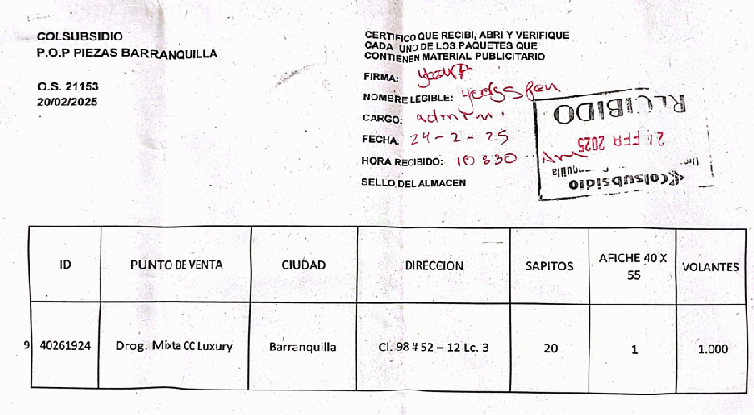 COLSUBSIDIO
P.O.P PIEZAS BARRANQUILLA
O.S. 21153
20/02/2025
CERTIFICO QUE RECIBI, ABRI Y VERIFIQUE
CADA UNO DE LOS PAQUETES QUE
CONTIENEN MATERIAL PUBLICITARIO
FIRMA:
NOMBRE LEGIBLE:
CARGO:
FECHA 24-2-25
HORA RECIBIDO: 10:30 Am
SELLO DEL ALMACEN
RECIBIDO
24 FEB 2025
Colsubsidio
ID PUNTO DE VENTA CIUDAD DIRECCION SAPITOS AFICHE 40 X 55 VOLANTES
9 40261924 Drog. Mixta CC Luxury Barranquilla Cl. 98 # 52 – 12 Lc. 3 20 1 1.000